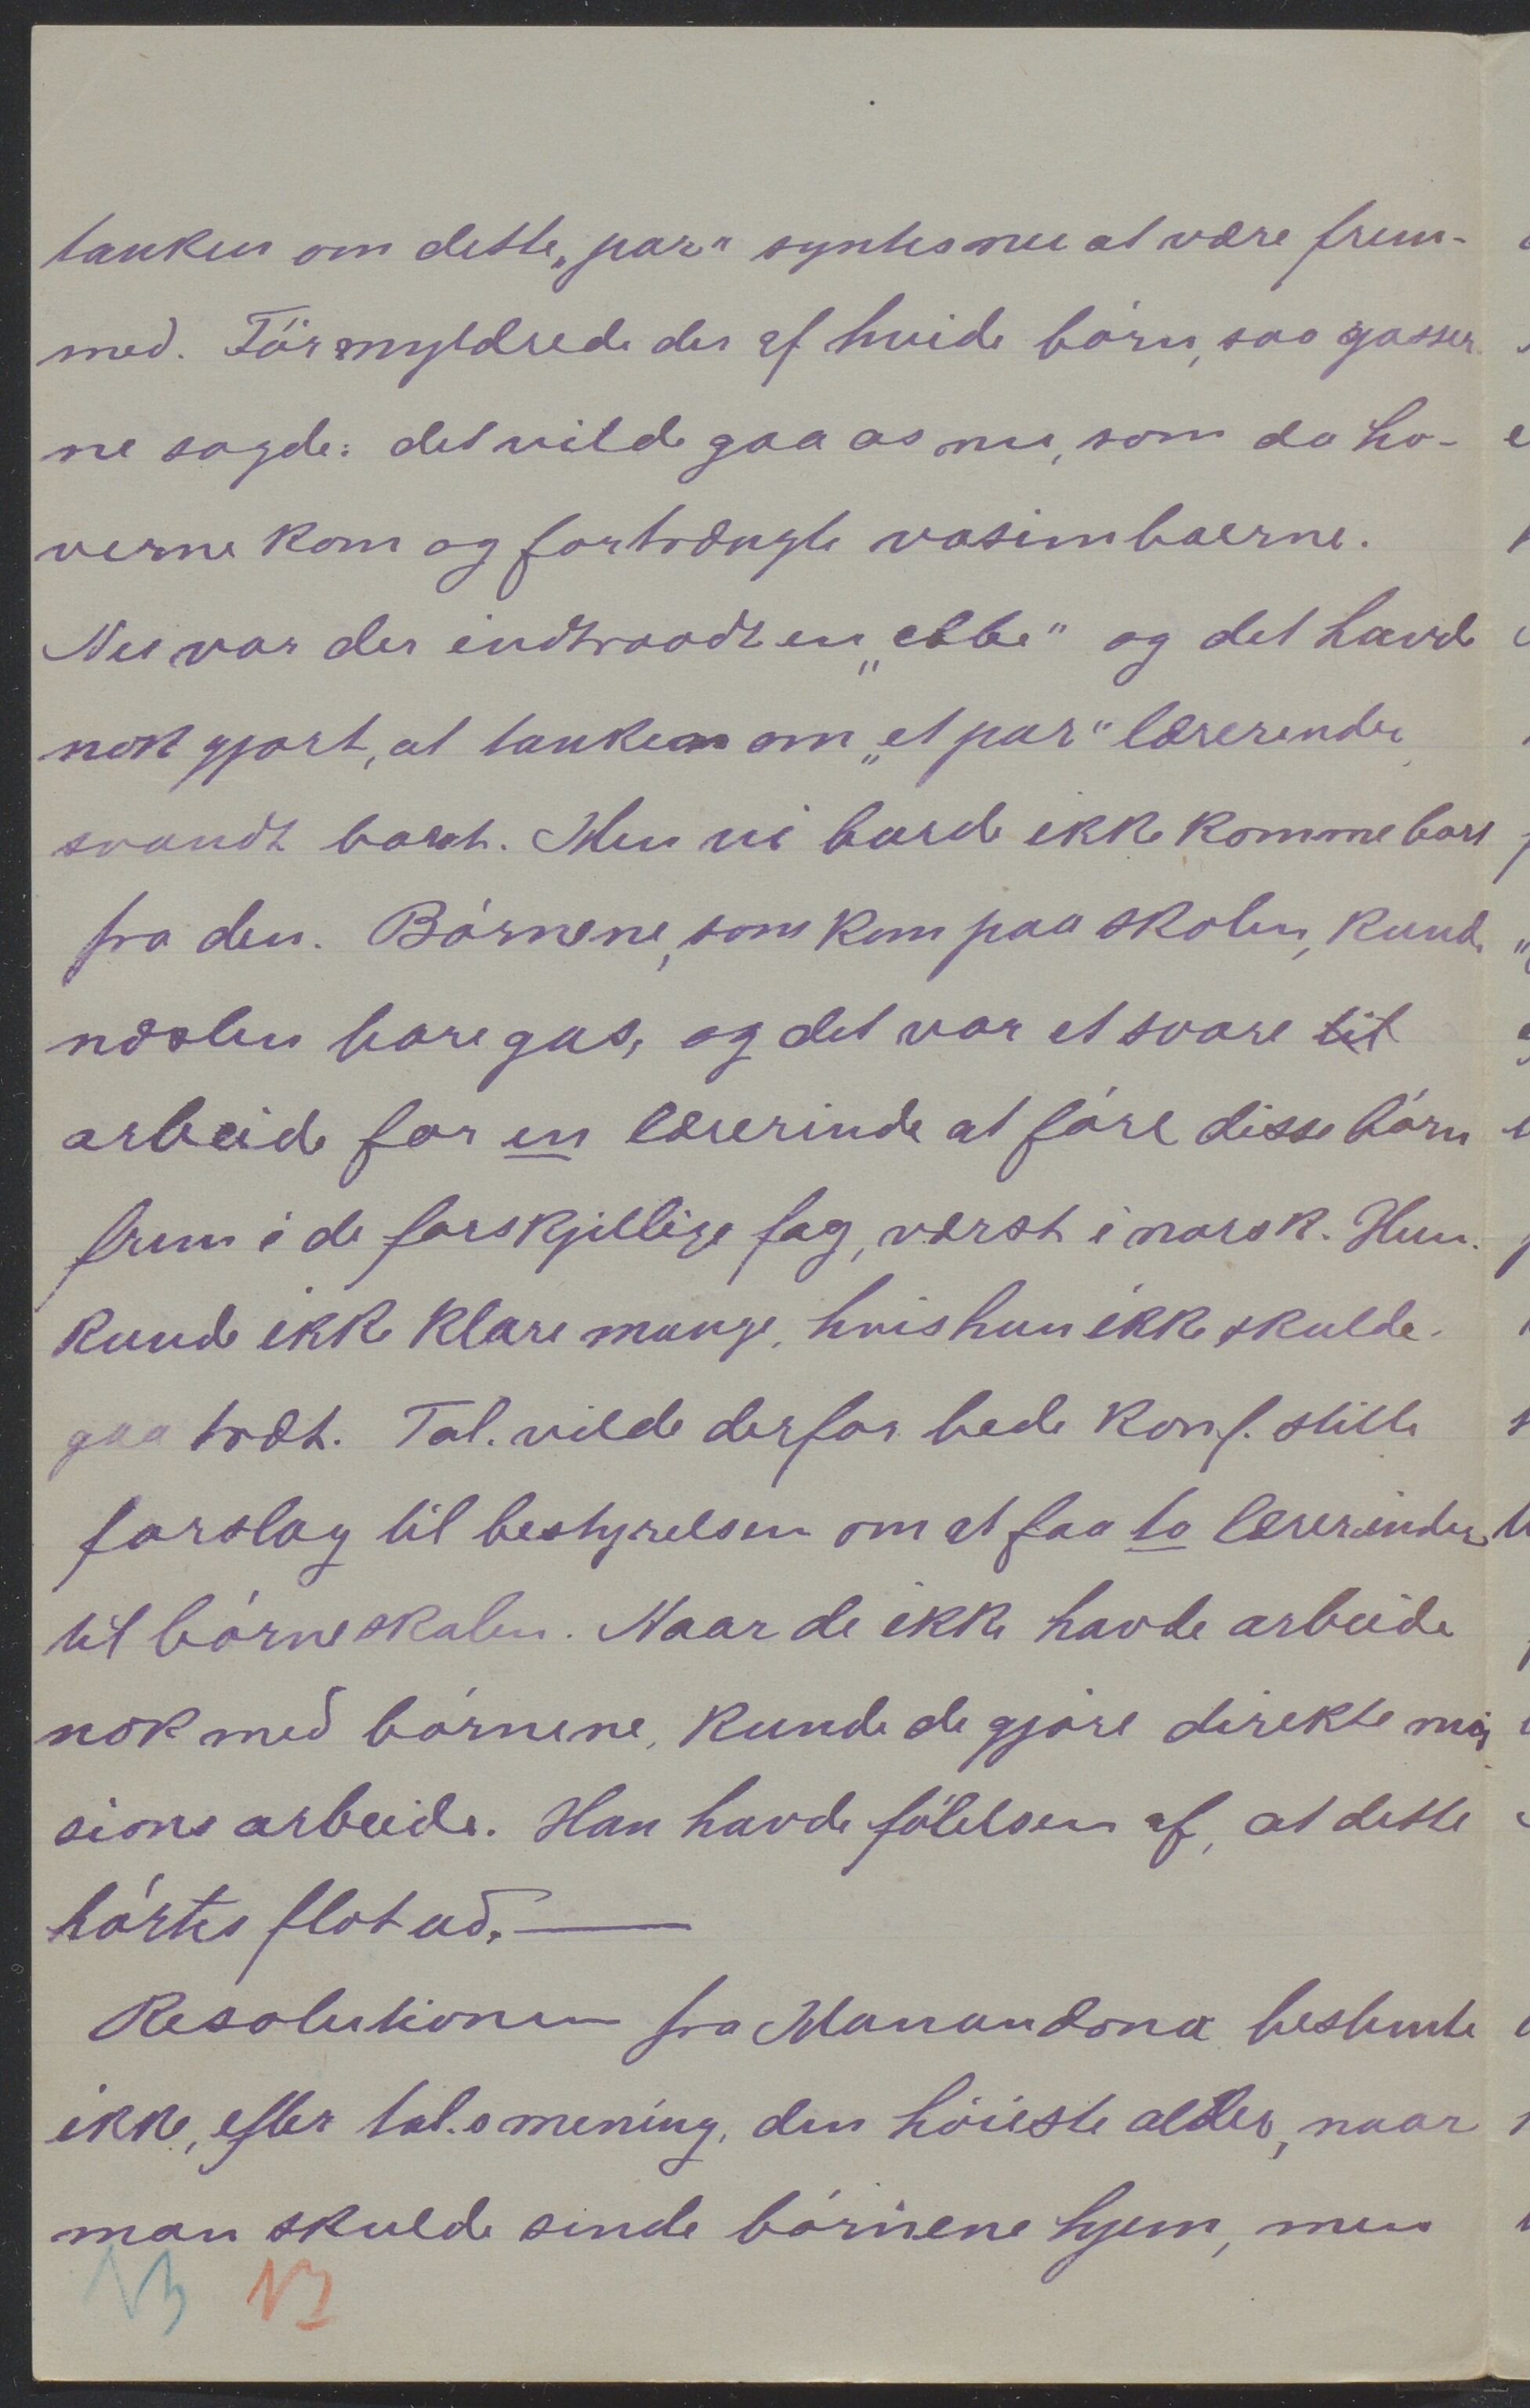 tanken om dette „par" syntes nu at være frem-
med. För myldrede der af hvide börn, saa gasser-
ne sagde: det vilde gaa os nu, som da ho-
verne kom og fortrængte vasimbaerne.
Nu var der indtraadt en „ebbe" og det havde
nok gjort, at tanken om „et par" lærerinder
svandt bort. Men vi burde ikke komme bort
fra den. Börnene, som kom paa skolen, kunde
næsten bare gas, og det var et svare til
arbeide for en lærerinde at före disse börn
frem i de forskjellige fag, værst i norsk. Hun
kunde ikke klare mange, hvis hun ikke skulde
gaa træt. Tal. vilde derfor bede konf. stille
forslag til bestyrelsen om at faa to lærerinder
til börneskolen. Naar de ikke havde arbeide
nok med börnene, kunde de gjöre direkte mis
sions arbeide. Han havde fölelsen af, at dette
hörtes flot ud. —
Resolutionen fra Manandona bestemte
ikke, efter tal.s mening, den höieste alder, naar
man skulde sende börnene hjem, men
13 13